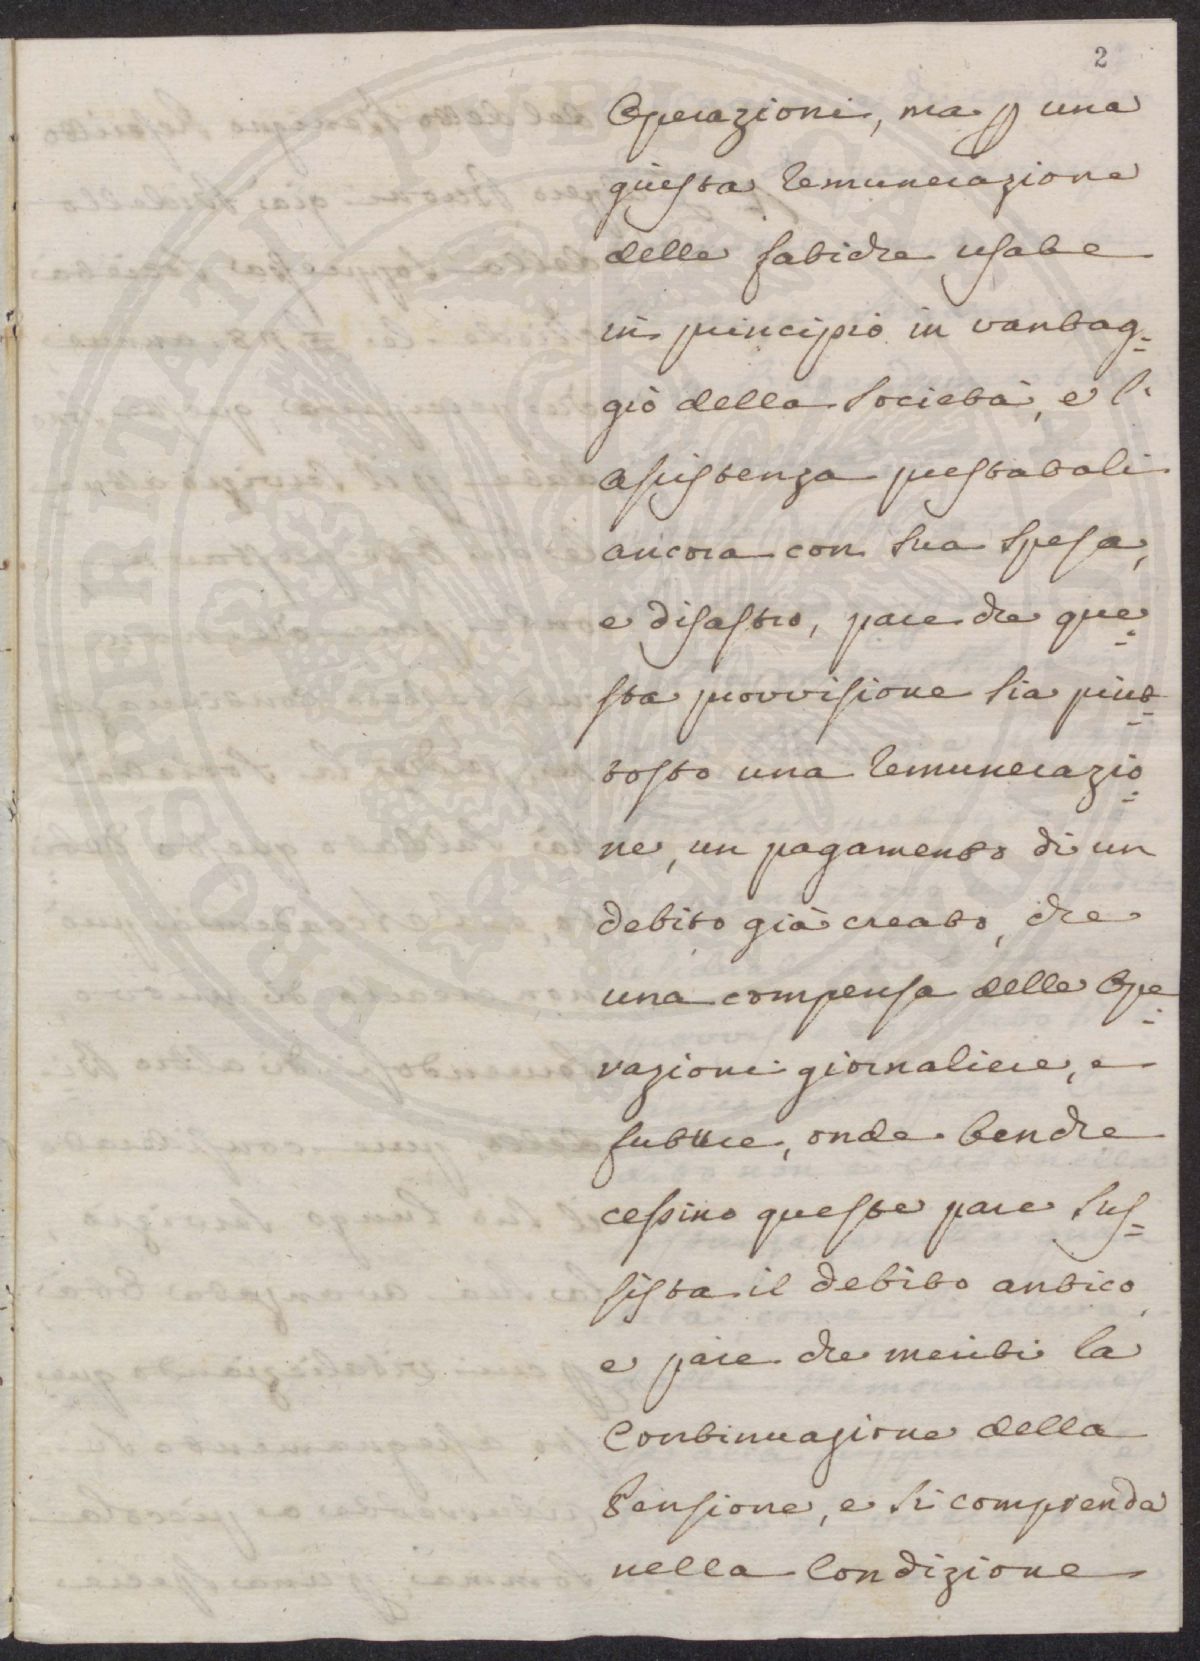 2
Operazioni, ma p una
giusta remunerazione
delle fatiche usate
in principio in vantag=
gio della Società, e l'
assistenza prestatali
ancora con sua spesa,
e disastro, pare che que=
sta provvisione sia piut=
tosto una remunerazio=
ne, un pagamento di un
debito già creato, che
una compensa delle Ope=
razioni giornaliere, e
future, onde benche
cessino queste pare sus=
sista il debito antico,
e pare che meriti la
Continuazione della
Pensione, e si comprenda
nella Condizione